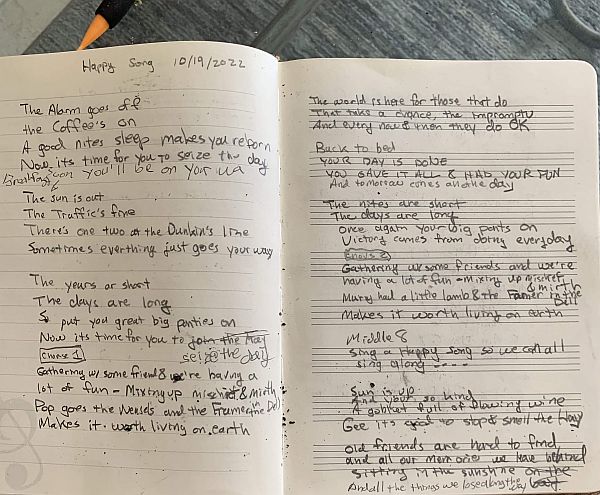 Happy Song 10/19/2022
The Alarm goes off
the Coffee's on
A good nites sleep makes you reborn
Now its time for you to seize the day
Breakfast soon you'll be on your
The sun is out
The Traffic's fine
There's one two at the Dunkin's line
Sometimes everthing just goes your way
The years ar short
The days are long
put you great big panties on
Now its time for you to join the fray
seize the day
Chorus 1
Gathering w/ some friends & we're having a
lot of fun - Mixing up mischief & mirth
Pop goes the Wensels and the Framer in the Dell
Makes it worth living on earth
The world is here for those that do
That take a chance, the impromptu
And every now & then they do OK
Back to bed
YOUR DAY IS DONE
YOU GAVE IT ALL & HAD YOUR FUN
And tomorrow comes another day
The nites are short
The days are long
Once again your big pants on
Victory comes from doing everyday
Chorus 2
Gathering w/ some friends and we're
having a lot of fun - Mixing up mischief
& mirth
Mary had a little lamb & the Farmer in the
Dell
Makes it worth living on earth
Middle 8
Sing a Happy Song so we can all
sing along ----
Sun is up
so kind
A goblet full of flowing wine
Gee its good to stop & smell the Hay
Old friends are hard to find,
and all our memories we have
sitting in the sunshine on the
And all the things we losed along the day